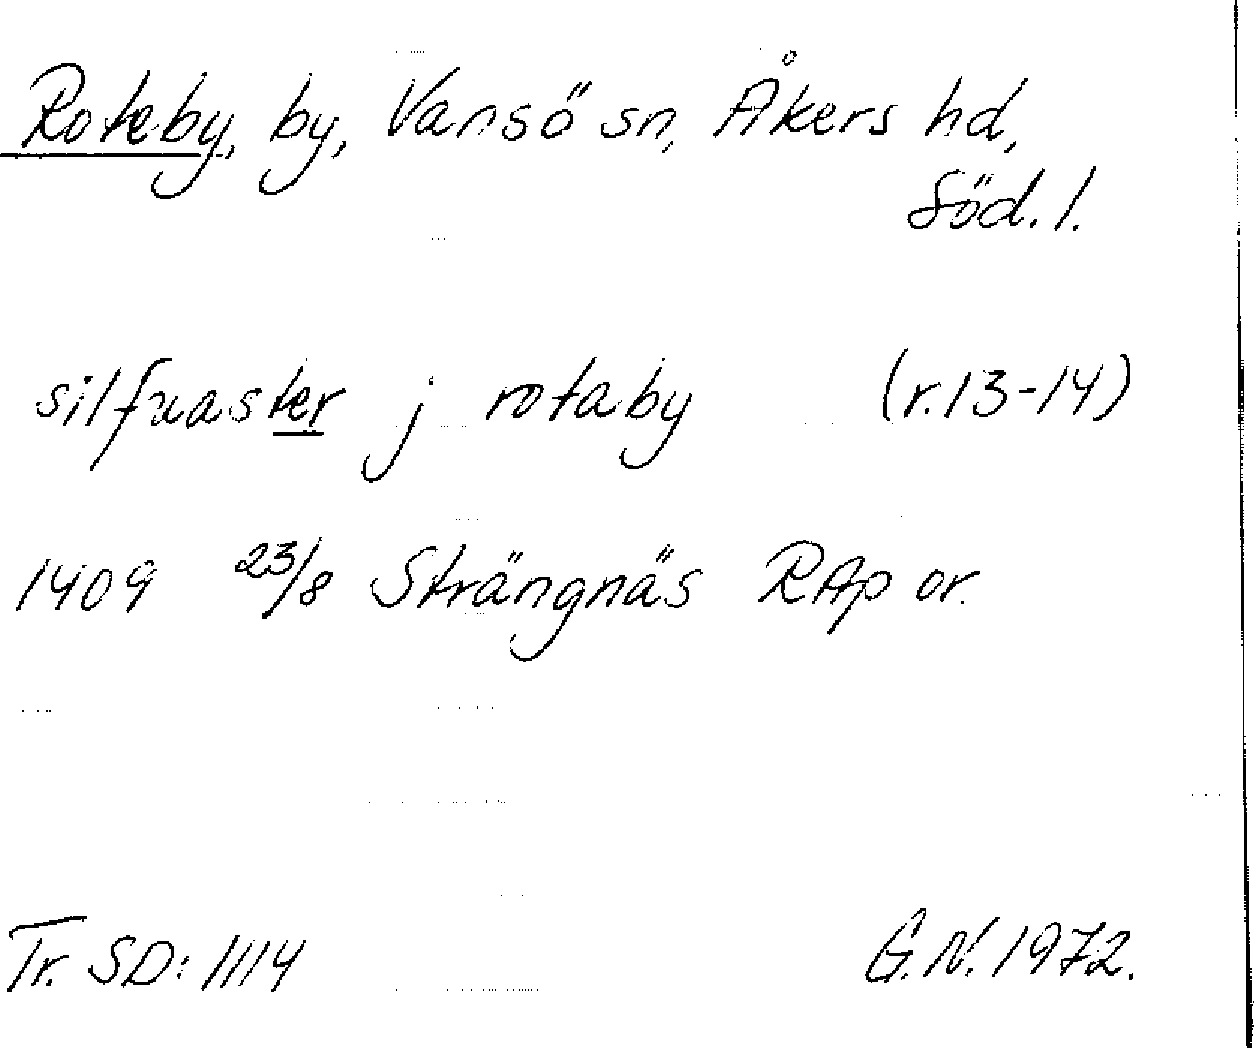 Roteby, by, Vansö sn, Åkers hd,
Söd. l.
silfuaster j rotaby (r.13-14)
1409 23/8 Strängnäs RAp or.
Tr. SD: 1114 G.N. 1972.